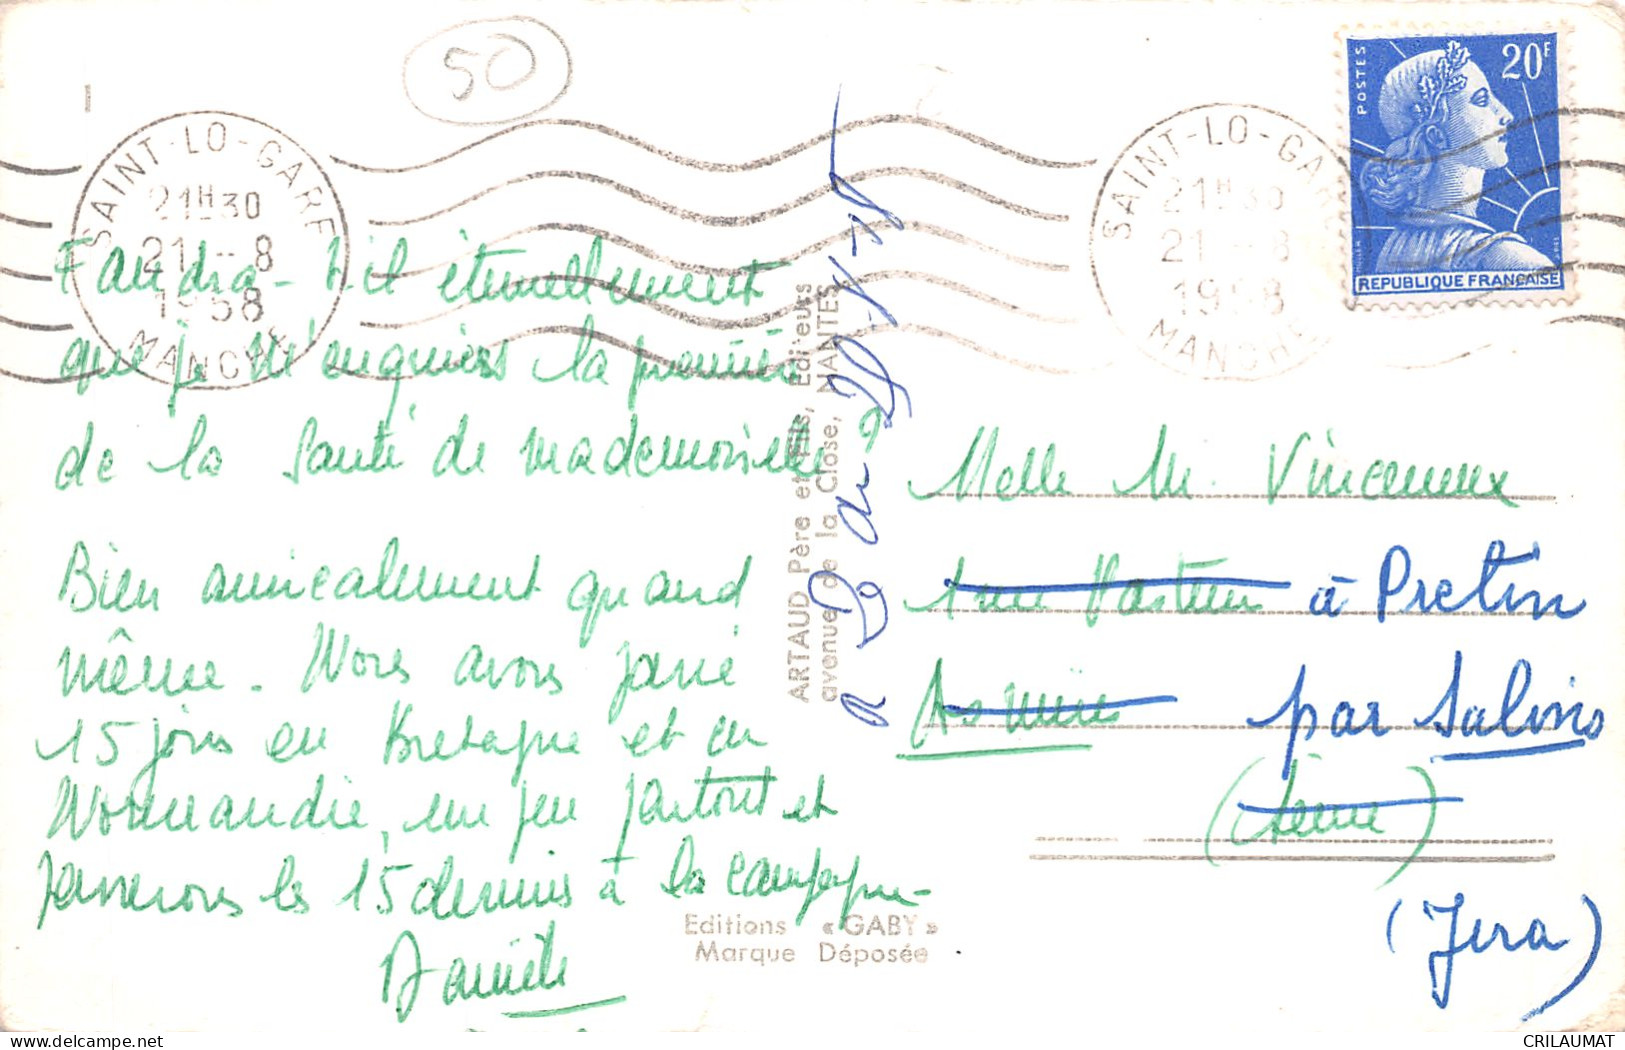 50
SAINT-LO-GARE
21H30
21 - 8
1958
MANCHE
SAINT-LO-GARE
21H30
21 - 8
1958
MANCHE
POSTES
20F
REPUBLIQUE FRANÇAISE
Faudra-t-il éternellement
que je m'enquiers la première
de la santé de mademoiselle?
Bien amicalement quand
même. Nous avons passé
15 jours en Bretagne et en
Normandie, un peu partout et
passerons les 15 derniers à la campagne
Danièle
ARTAUD Père et Fils, Editeurs
avenue de la Close, NANTES
Editions « GABY »
Marque Déposée
Melle M. Vincenneux
rue Pasteur à Pretin
Asnières par Salins
(Seine)
(Jura)
CRILAUMAT